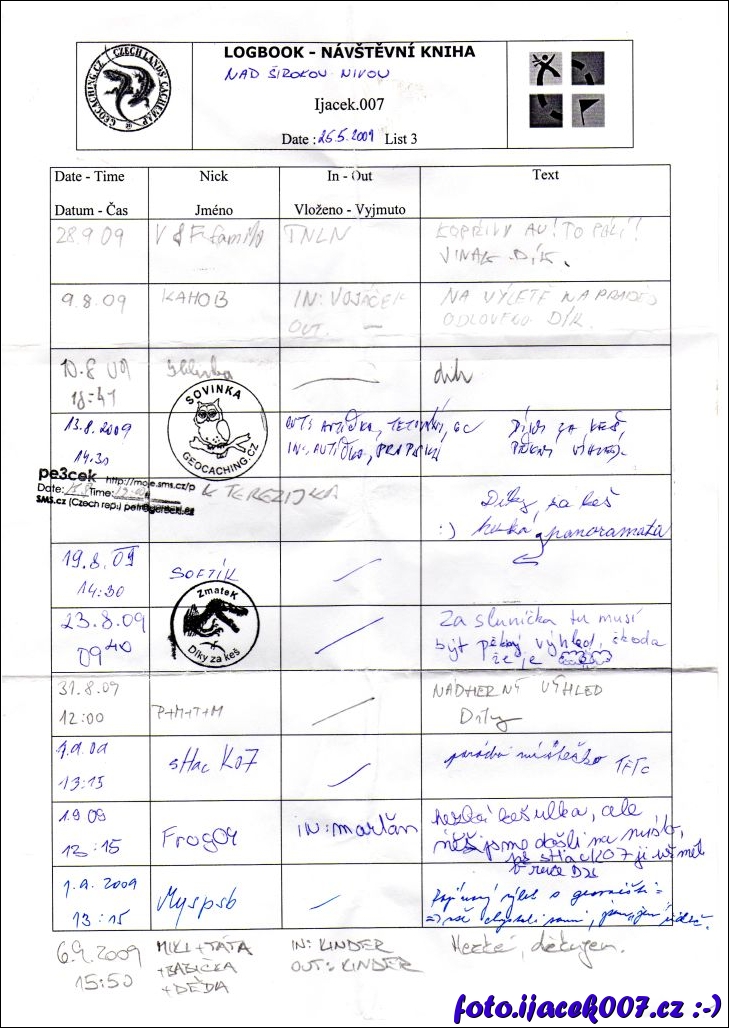 GEOCACHING.CZ CZECH LANDS' CACHEMAP @
LOGBOOK - NÁVŠTĚVNÍ KNIHA
NAD ŠIROKOU NIVOU
Ijacek.007
Date : 26.5.2009 List 3
Date - Time Nick In - Out Text
Datum - Čas Jméno Vloženo - Vyjmuto
28.9 09 V & F family TNLN KOPŘIVY AU! TO PÁLÍ!
JINAK DÍK.
9.8.09 KAHOB IN: VOJÁČEK NA VÝLETĚ NA
OUT. — DÍK.
10.8 09 dík
18:41
SOVINKA
GEOCACHING.CZ
13.8.2009 OUT: AUTÍČKO, GC DÍKY ZA KEŠ,
14:30 IN: AUTÍČKO, PĚKNÝ VÝHLED.
pe3cek http://moje.sms.cz/p
Date: Time:
SMS.cz (Czech rep.)
K TEREZIJKA
Díky za keš
:) hezká panoramata
19.8.09 SOFTÍK
14:30
ZmateK
Díky za keš
23.8.09 Za sluníčka tu musí
09 40 být pěkný výhled, škoda
že je
31.8.09 NÁDHERNÝ VÝHLED
12:00 P+M+T+M Díky
1.9.09 sHac K07 TFTC
13:15
1.9 09 Frog04 IN: marťan hezká keškulka, ale
13:15 než jsme došli na místo,
sHacK07 ji už měl
v ruce Dík
1.9.2009 Myspsb
13:15
6.9.2009 MIKI + TÁTA IN: KINDER Hezké, děkujem.
15:50 + BABIČKA OUT: KINDER
+ DĚDA
foto.ijacek007.cz :-)